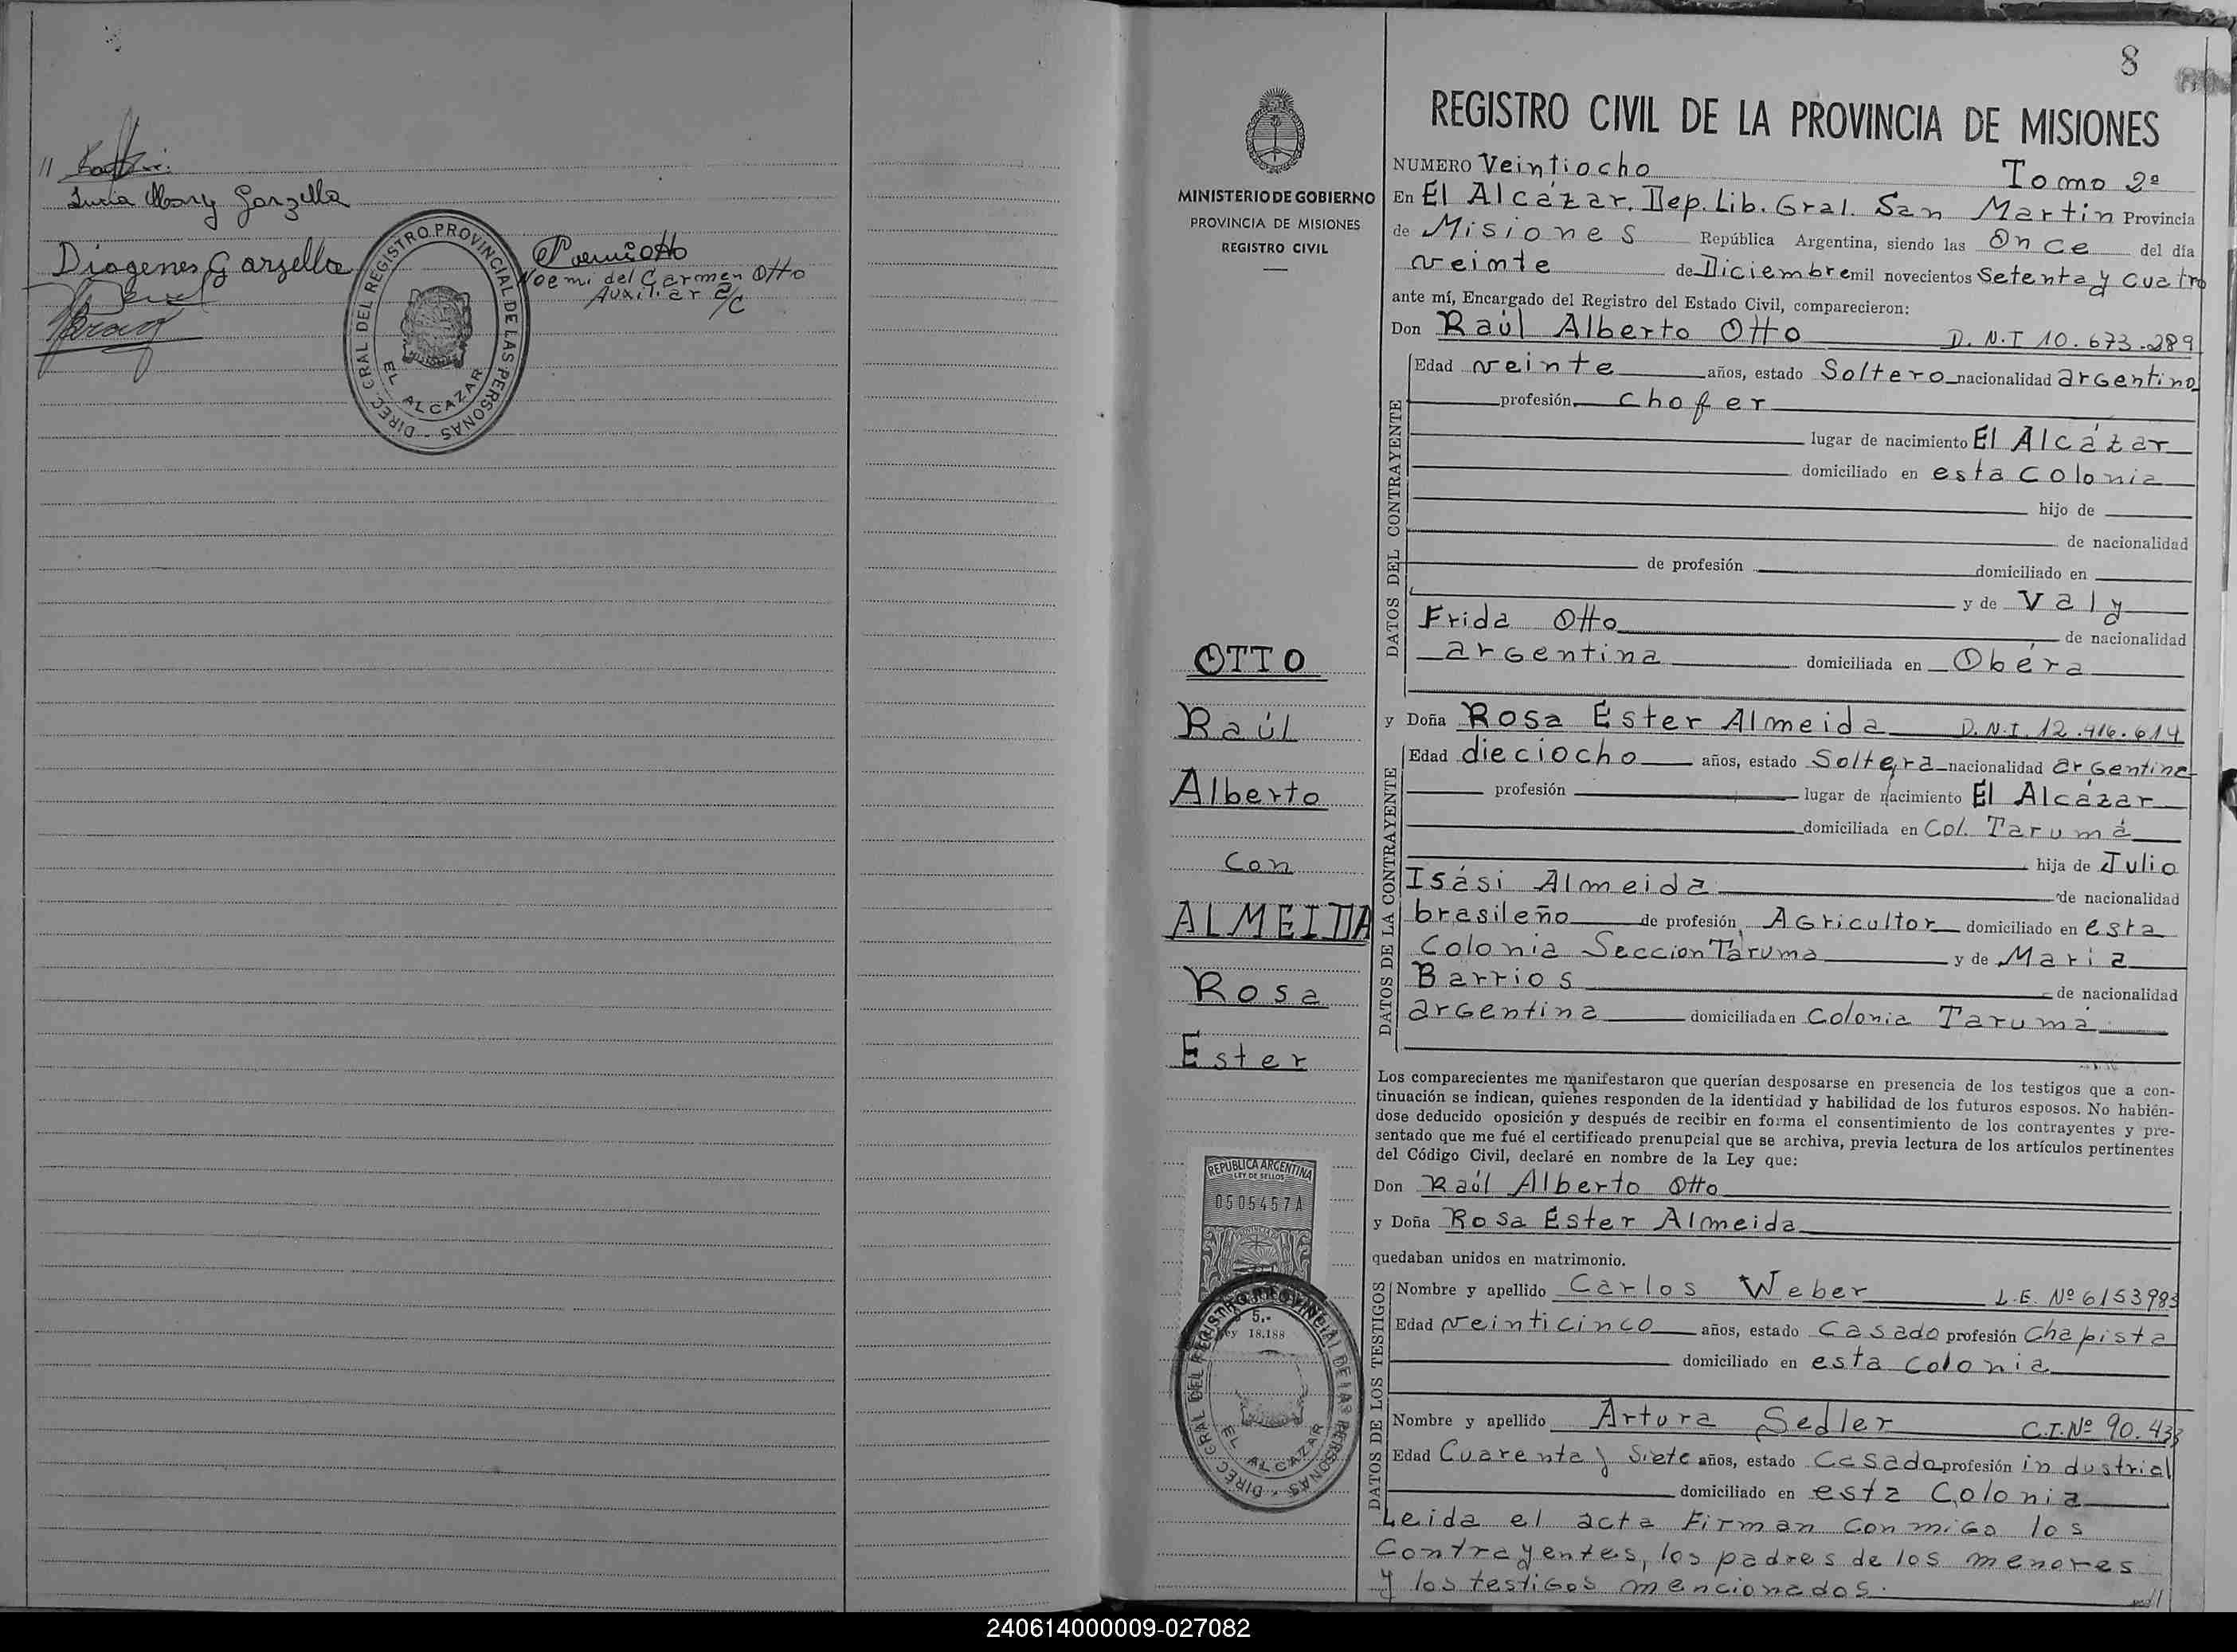 //
Lucia Mary Garzella
Diogenes Garzella
DIREC. GRAL DEL REGISTRO PROVINCIAL DE LAS PERSONAS -
EL ALCAZAR
Noemi del Carmen Otto
Auxiliar a/c
8
REGISTRO CIVIL DE LA PROVINCIA DE MISIONES
MINISTERIO DE GOBIERNO
PROVINCIA DE MISIONES
REGISTRO CIVIL
NUMERO Veintiocho Tomo 2º
En El Alcázar. Dep. Lib. Gral. San Martin Provincia
de Misiones República Argentina, siendo las Once del día
veinte de Diciembre mil novecientos Setenta y Cuatro
ante mí, Encargado del Registro del Estado Civil, comparecieron:
Don Raúl Alberto Otto D.N.I 10.673.289
DATOS DEL CONTRAYENTE
Edad veinte años, estado Soltero nacionalidad argentino
profesión chofer
lugar de nacimiento El Alcázar
domiciliado en esta Colonia
hijo de
de nacionalidad
de profesión domiciliado en
y de Valy
Frida Otto de nacionalidad
argentina domiciliada en Obéra
OTTO
Raúl
Alberto
Con
ALMEIDA
Rosa
Ester
y Doña Rosa Ester Almeida D.N.I. 12.416.614
DATOS DE LA CONTRAYENTE
Edad dieciocho años, estado Soltera nacionalidad argentina
profesión lugar de nacimiento El Alcázar
domiciliada en Col. Tarumá
hija de Julio
Isási Almeida de nacionalidad
brasileño de profesión Agricultor domiciliado en esta
Colonia Seccion Taruma y de Maria
Barrios de nacionalidad
argentina domiciliada en Colonia Tarumá
Los comparecientes me manifestaron que querían desposarse en presencia de los testigos que a con-
tinuación se indican, quienes responden de la identidad y habilidad de los futuros esposos. No habién-
dose deducido oposición y después de recibir en forma el consentimiento de los contrayentes y pre-
sentado que me fué el certificado prenupcial que se archiva, previa lectura de los artículos pertinentes
del Código Civil, declaré en nombre de la Ley que:
Don Raúl Alberto Otto
y Doña Rosa Ester Almeida
quedaban unidos en matrimonio.
REPUBLICA ARGENTINA
LEY DE SELLOS
0505457A
5.-
Ley 18.188
DIREC. GRAL DEL REGISTRO PROVINCIAL DE LAS PERSONAS -
EL ALCAZAR
DATOS DE LOS TESTIGOS
Nombre y apellido Carlos Weber L.E. Nº 6153983
Edad veinticinco años, estado Casado profesión Chapista
domiciliado en esta Colonia
Nombre y apellido Artura Sedler C.I.Nº 90.433
Edad Cuarenta y Siete años, estado Casado profesión industrial
domiciliado en esta Colonia
Leida el acta Firman conmigo los
Contrayentes, los padres de los menores
y los testigos mencionados. //
240614000009-027082